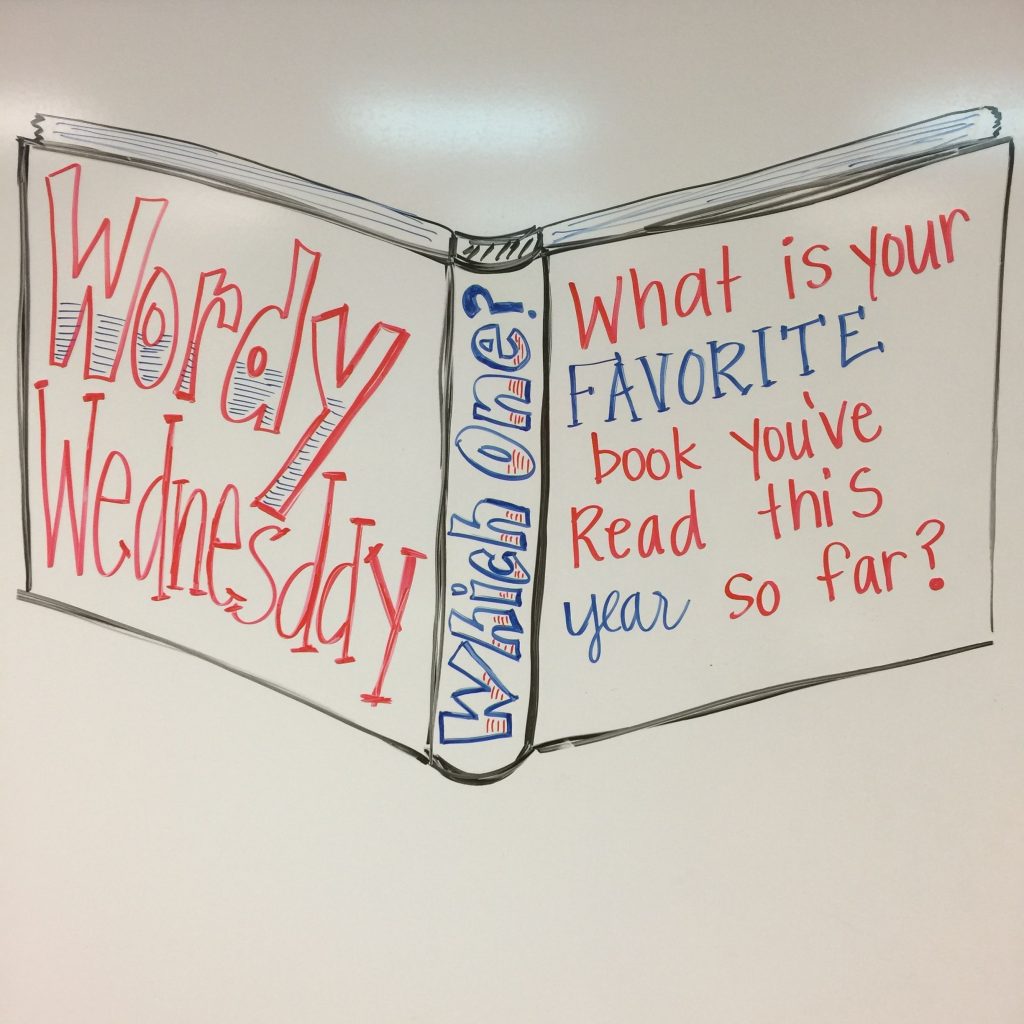 Wordy
Wednesday
Which One?
What is your
FAVORITE
book you've
Read this
year so far?